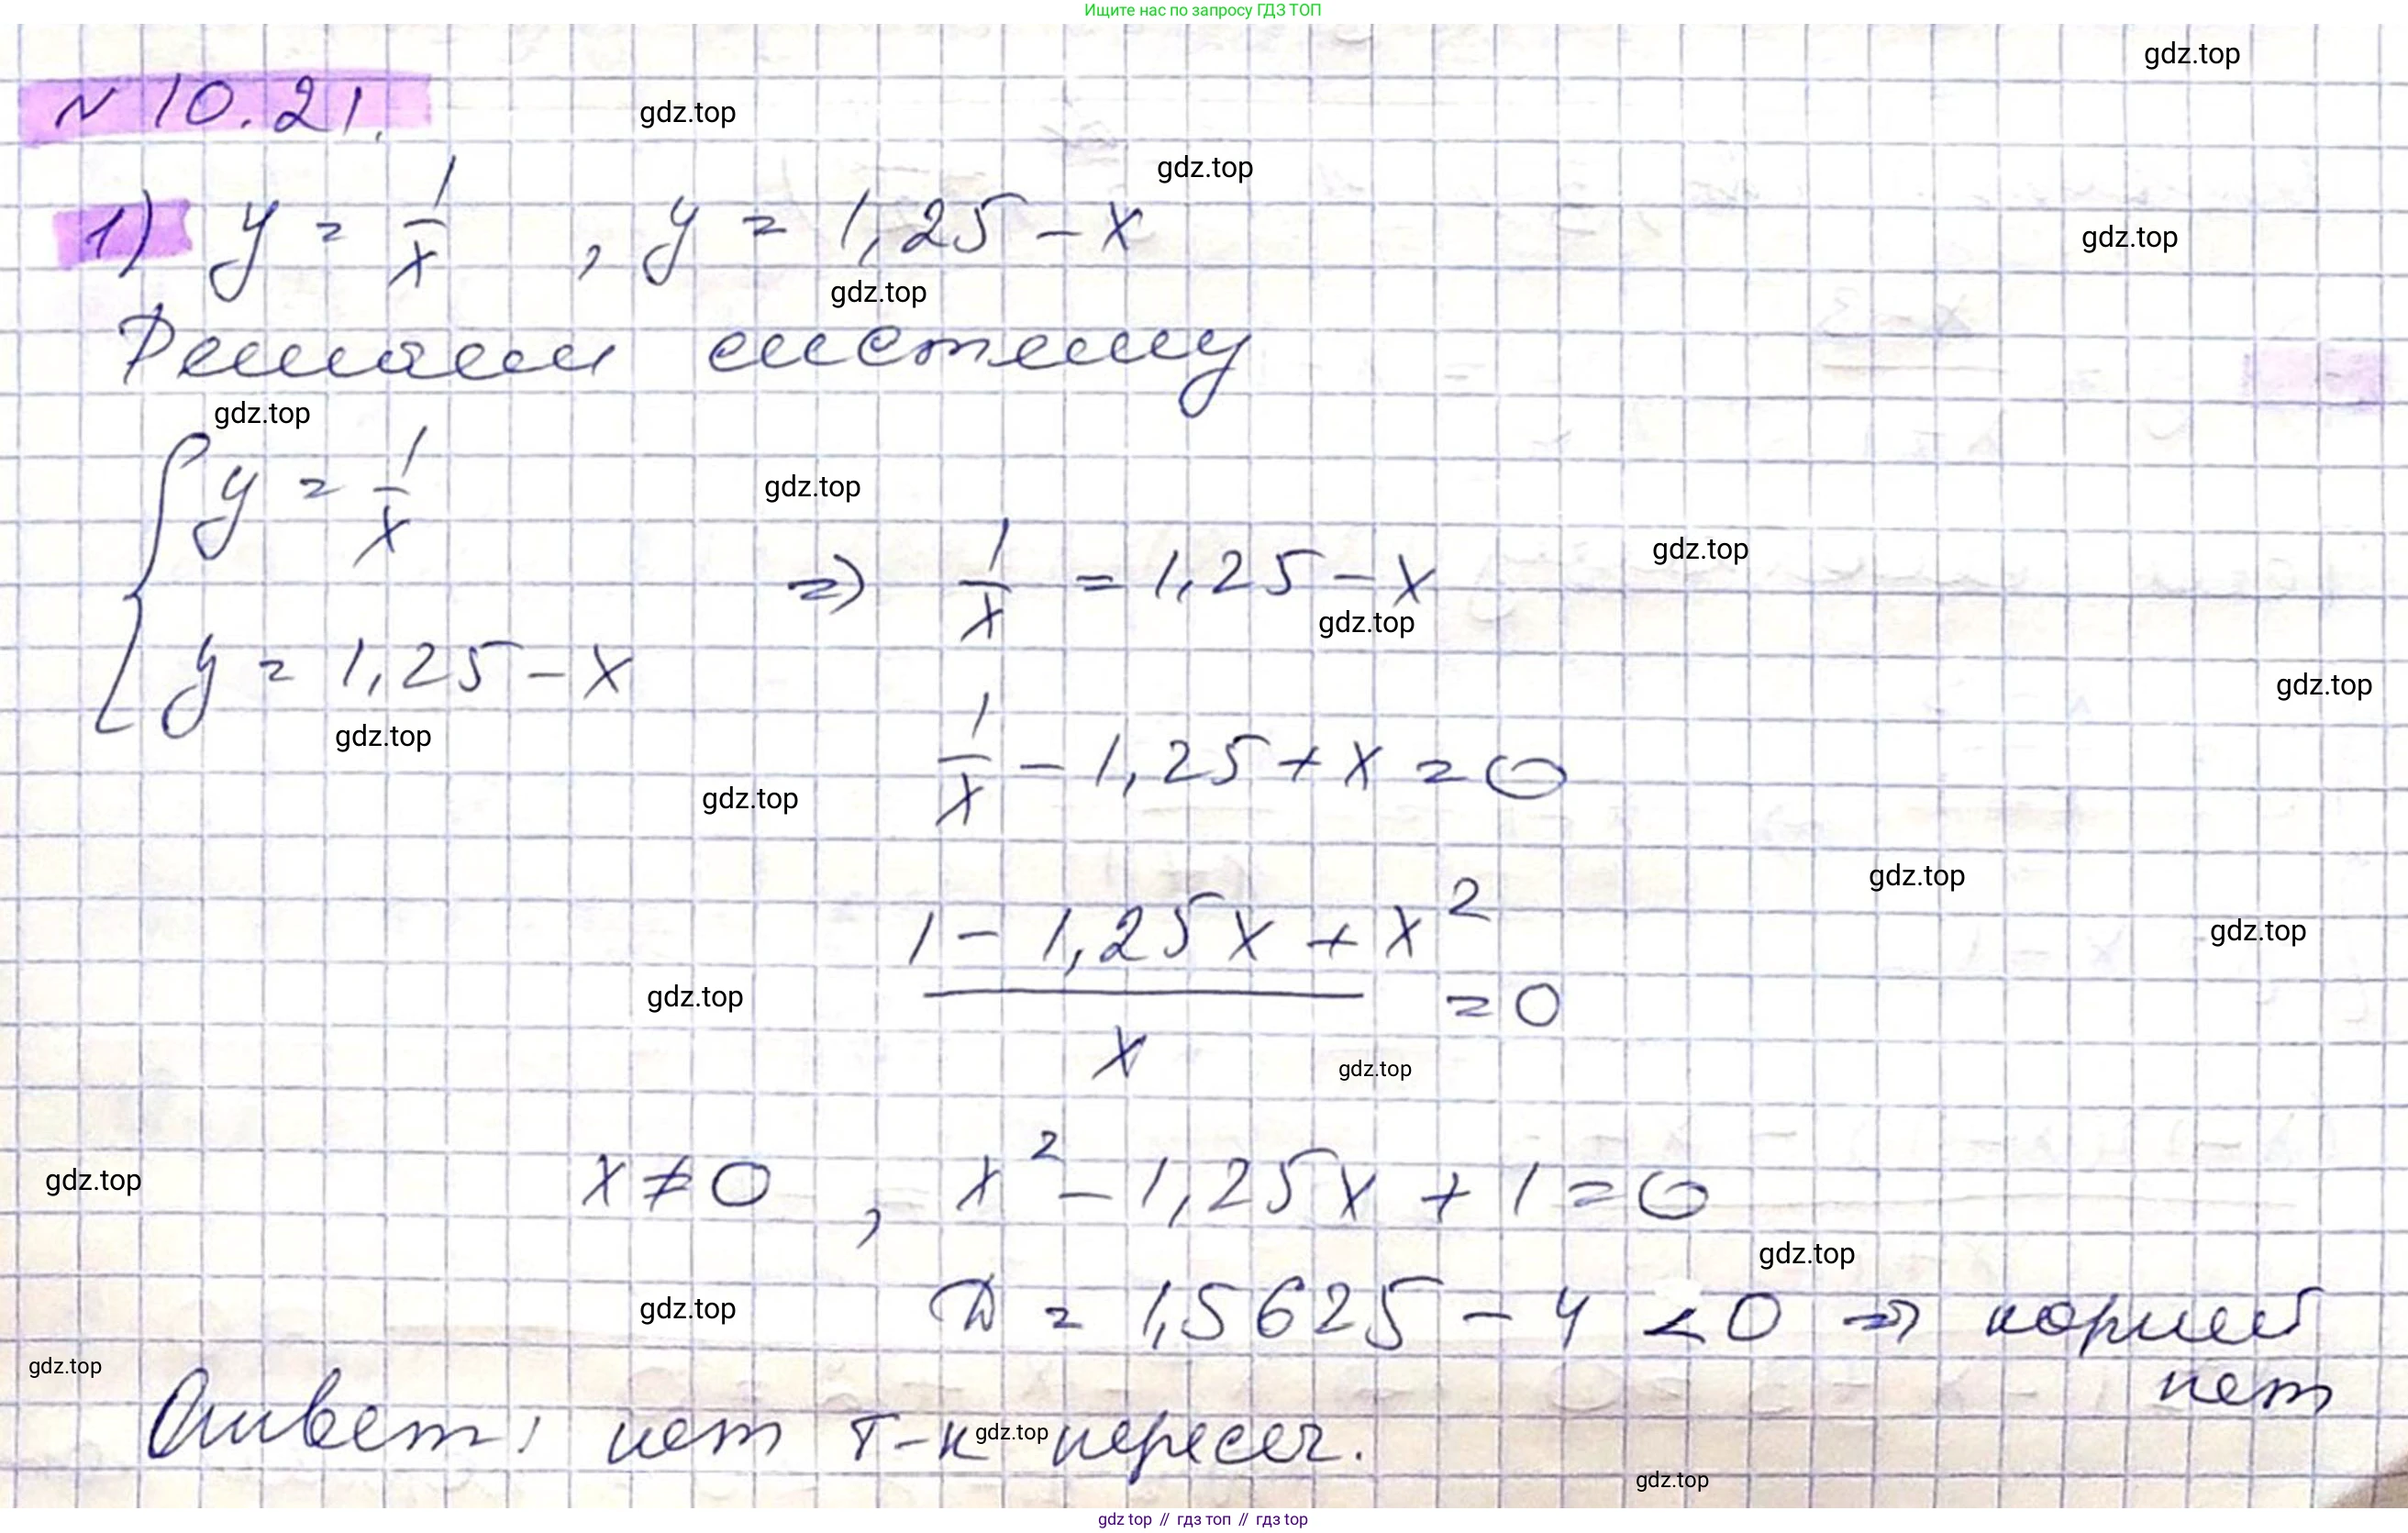 Ищите нас по запросу ГДЗ ТОП
gdz.top
N 10.21.
gdz.top
gdz.top
1) y = 1/x , y = 1,25 - x
gdz.top
gdz.top
Решаем систему
gdz.top
{ y = 1/x
gdz.top
gdz.top
=> 1/x = 1,25 - x
gdz.top
y = 1,25 - x
gdz.top
gdz.top
1/x - 1,25 + x = 0
gdz.top
gdz.top
(1 - 1,25x + x²)/x = 0
gdz.top
gdz.top
gdz.top
gdz.top
x ≠ 0 , x² - 1,25x + 1 = 0
gdz.top
gdz.top
D = 1,5625 - 4 < 0 => корней
нет
gdz.top
Ответ: нет т-к пересеч.
gdz.top
gdz.top
gdz top // гдз топ // гдз top